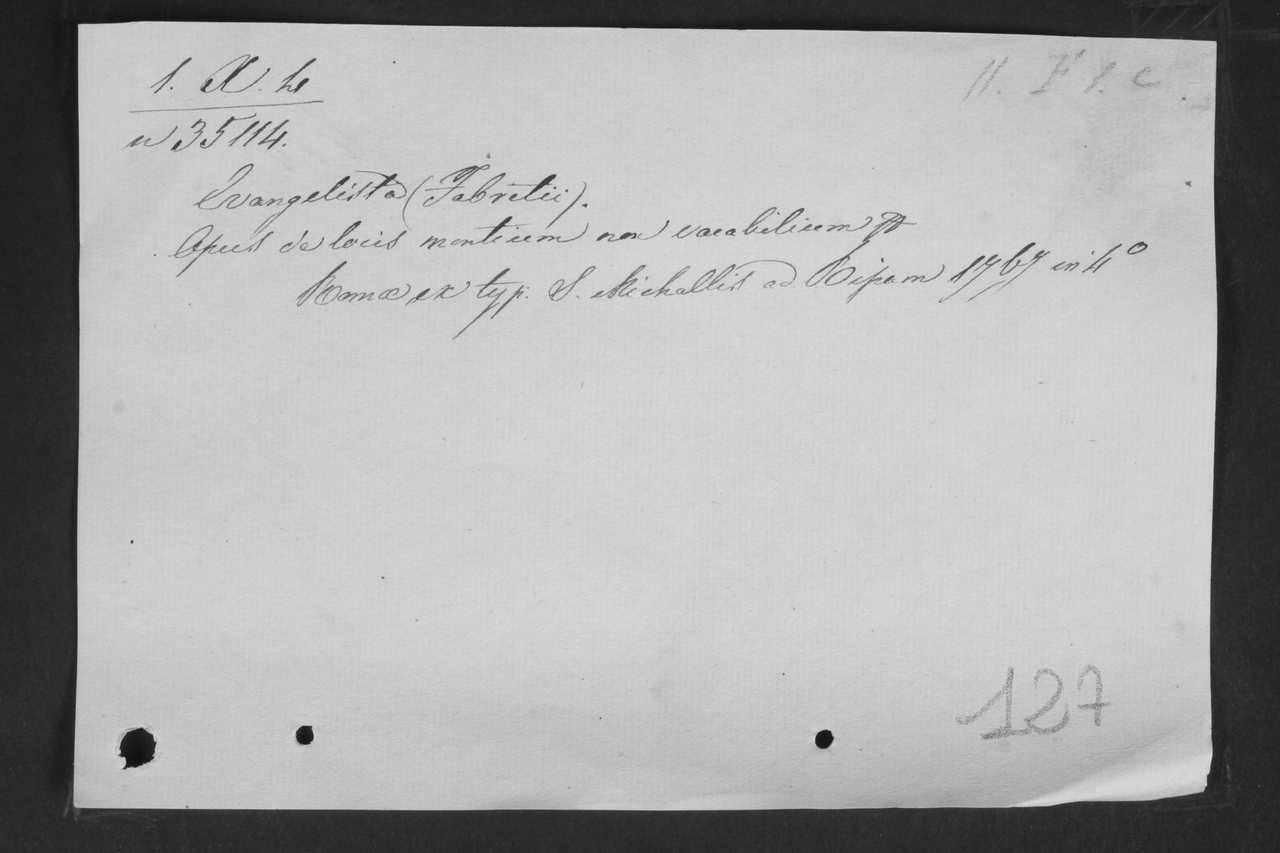 1. X. h
11. F 1. c.
n 35114.
Evangelista (Fabretii).
Opus de locis montium non vacabilium
Romæ ex typ. S. Michallis ad Ripam 1767 in 4º
127